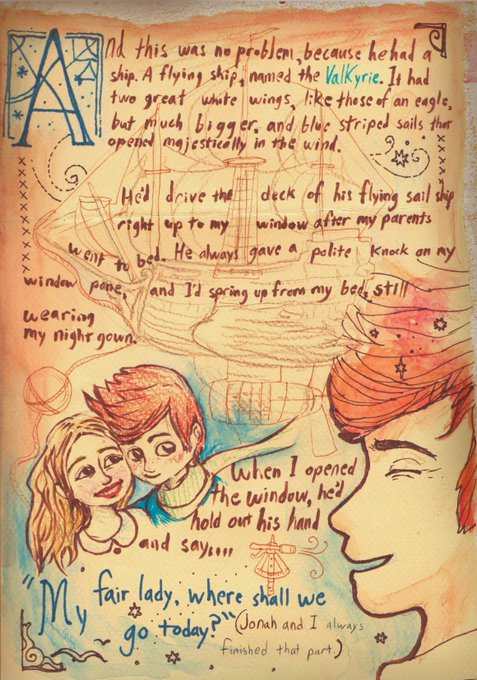 And this was no problem, because he had a
ship. A flying ship, named the Valkyrie. It had
two great white wings, like those of an eagle,
but much bigger. and blue striped sails that
opened majestically in the wind.
He'd drive the deck of his flying sail ship
right up to my window after my parents
went to bed. He always gave a polite knock on my
window pane, and I'd spring up from my bed, still
wearing
my night gown.
When I opened
the window, he'd
hold out his hand
and say....
"My fair lady, where shall we
go today?" (Jonah and I always
finished that part.)